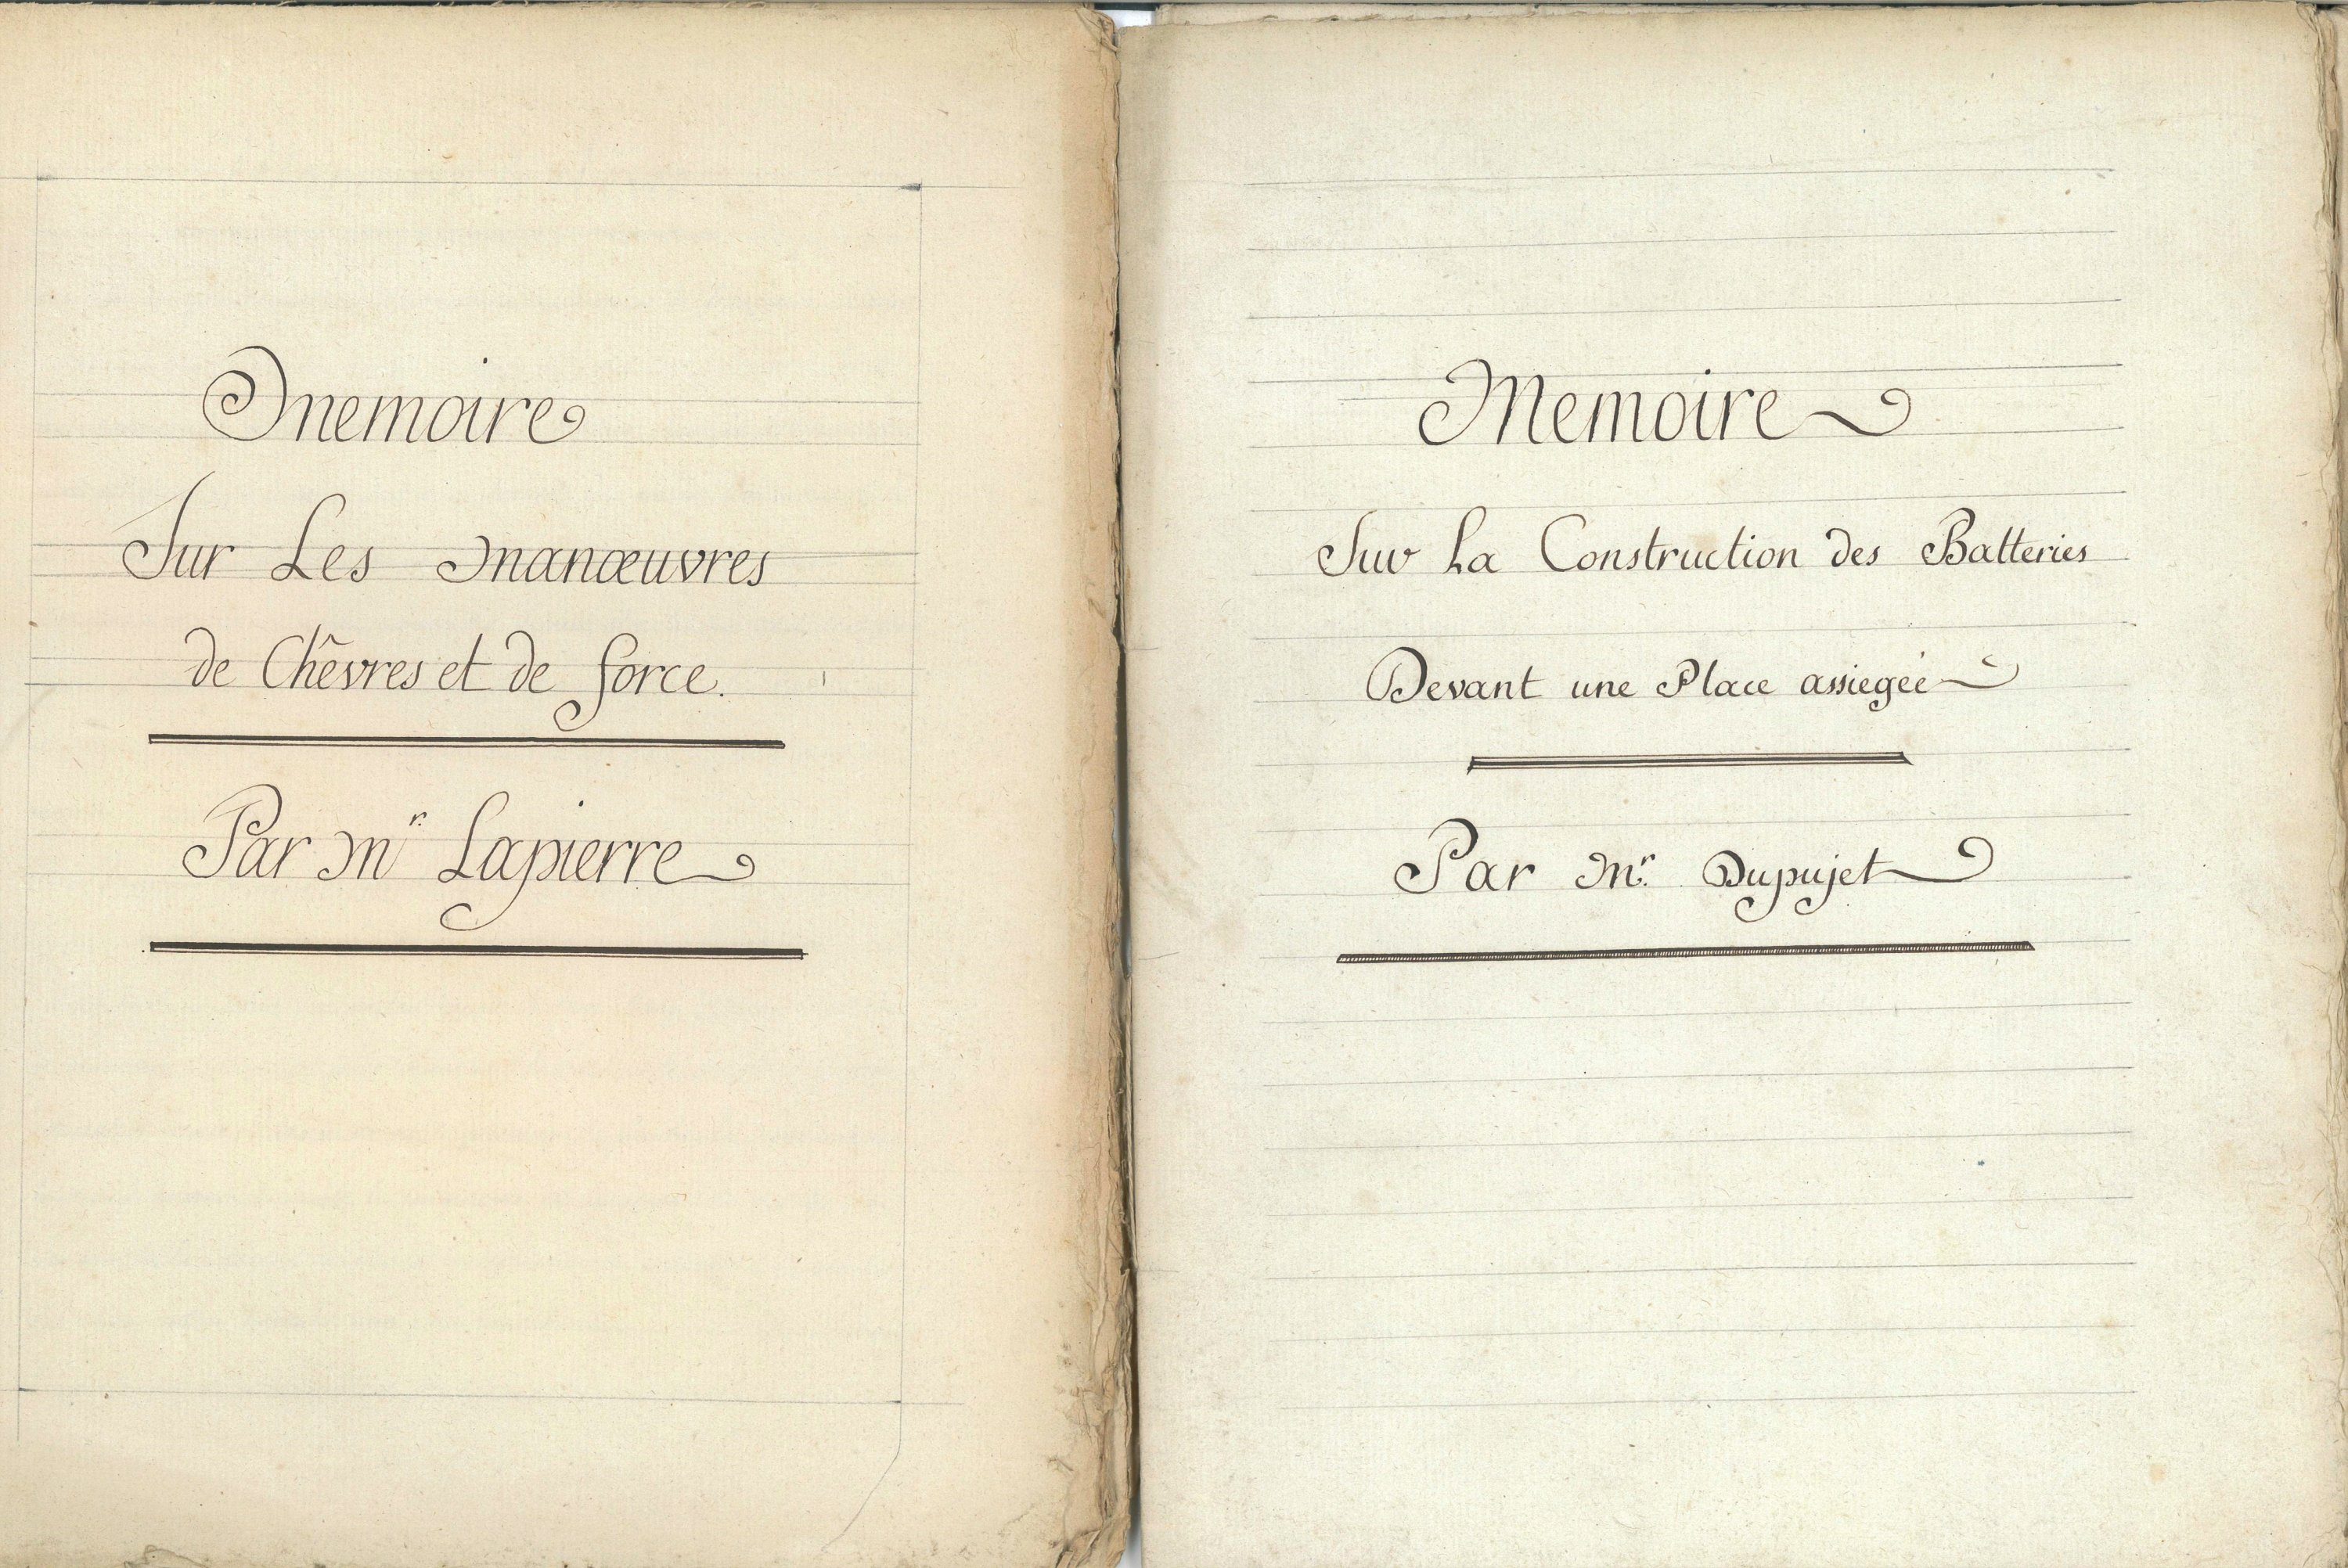 Memoire
Sur Les manœuvres
de Chêvres et de force.
Par Mr. Lapierre
Memoire
Sur La Construction des Batteries
Devant une Place assiegée
Par Mr. Dupujet